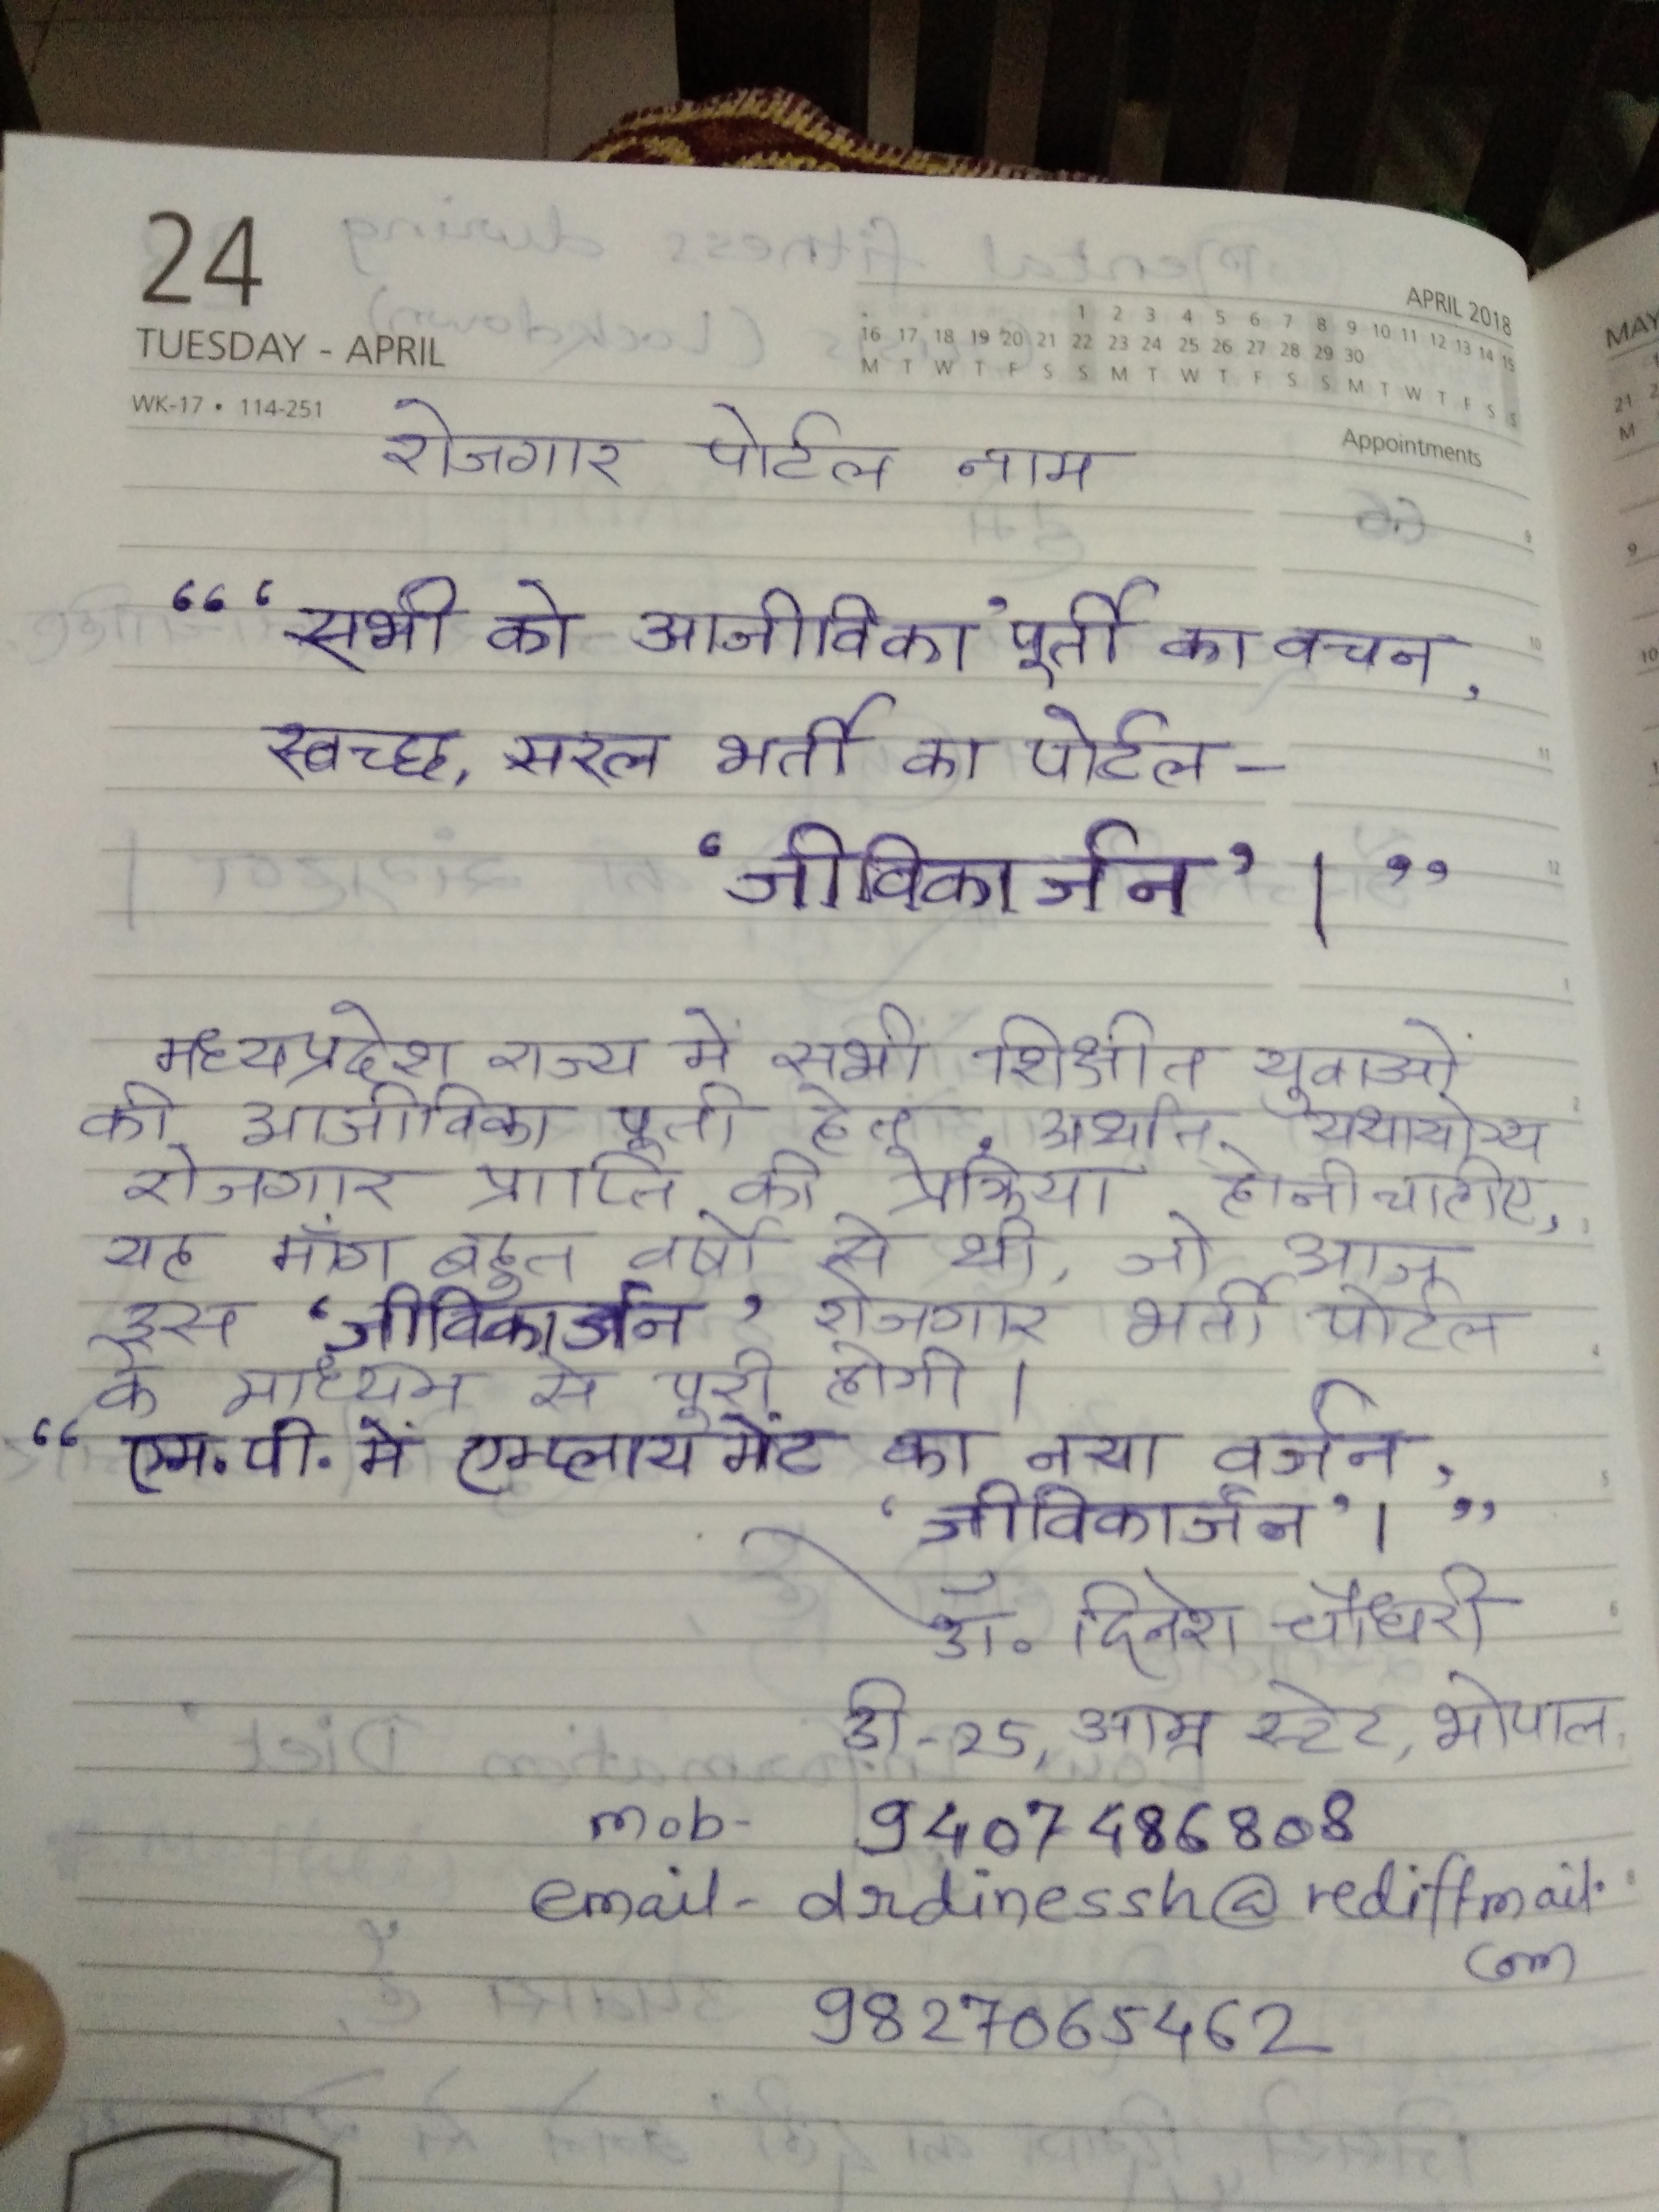 24
TUESDAY - APRIL
WK-17 • 114-251
APRIL 2018
1 2 3 4 5 6 7 8 9 10 11 12 13 14 15
16 17 18 19 20 21 22 23 24 25 26 27 28 29 30
M T W T F S S M T W T F S S M T W T F S S
Appointments
रोजगार पोर्टल नाम
“ ‘ सभी को आजीविका पूर्ती ’ का वचन,
स्वच्छ, सरल भर्ती का पोर्टल –
‘जीविकार्जन’ । ”
मध्यप्रदेश राज्य में सभी शिक्षीत युवाओं
की आजीविका पूर्ती हेतु, अर्थात यथायोग्य
रोजगार प्राप्ति की प्रक्रिया होनी चाहीए,
यह माँग बहुत वर्षों से थी, जो आज
इस ‘जीविकार्जन’ रोजगार भर्ती पोर्टल
के माध्यम से पूरी होगी ।
“ एम.पी. में एम्प्लायमेंट का नया वर्जन,
‘जीविकार्जन’ । ”
डॉ. दिनेश चौधरी
डी-25, आम्र स्टेट, भोपाल.
mob- 9407486808
email- drdinessh@rediffmail.
com
9827065462
MAY
21
M
9
10